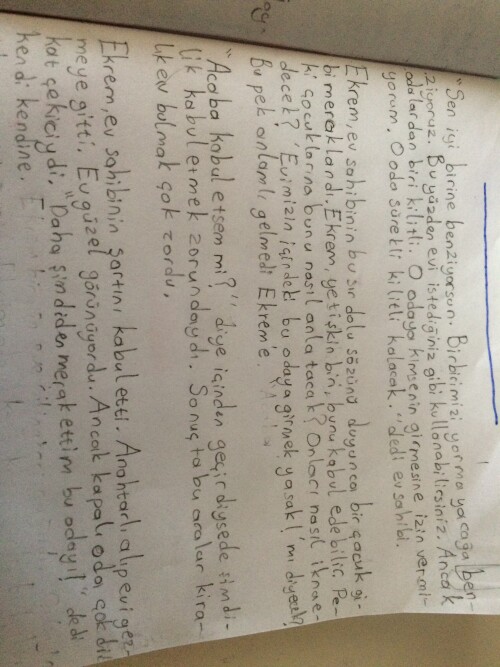 "Sen iyi birine benziyorsun. Birbirimizi yormayacağa ben-
ziyoruz. Bu yüzden evi istediğiniz gibi kullanabilirsiniz. Ancak
odalardan biri kilitli. O odaya kimsenin girmesine izin vermi-
yorum. O oda sürekli kilitli kalacak." dedi ev sahibi.
Ekrem, ev sahibinin bu sır dolu sözünü duyunca bir çocuk gi-
bi meraklandı. Ekrem, yetişkin biri, bunu kabul edebilir. Pe-
ki çocuklarına bunu nasıl anlatacak? Onları nasıl iknae-
decek? 'Evimizin içindeki bu odaya girmek yasak!' mı diyecek?
Bu pek anlamlı gelmedi Ekrem'e.
"Acaba kabul etsem mi?" diye içinden geçirdiysede şimdi-
lik kabul etmek zorundaydı. Sonuçta bu aralar kira-
lık ev bulmak çok zordu.
Ekrem, ev sahibinin şartını kabul etti. Anahtarı alıp evi gez-
meye gitti. Ev güzel görünüyordu. Ancak kapalı oda çok dik
kat çekiciydi. "Daha şimdiden merak ettim bu odayı!" dedi
kendi kendine.